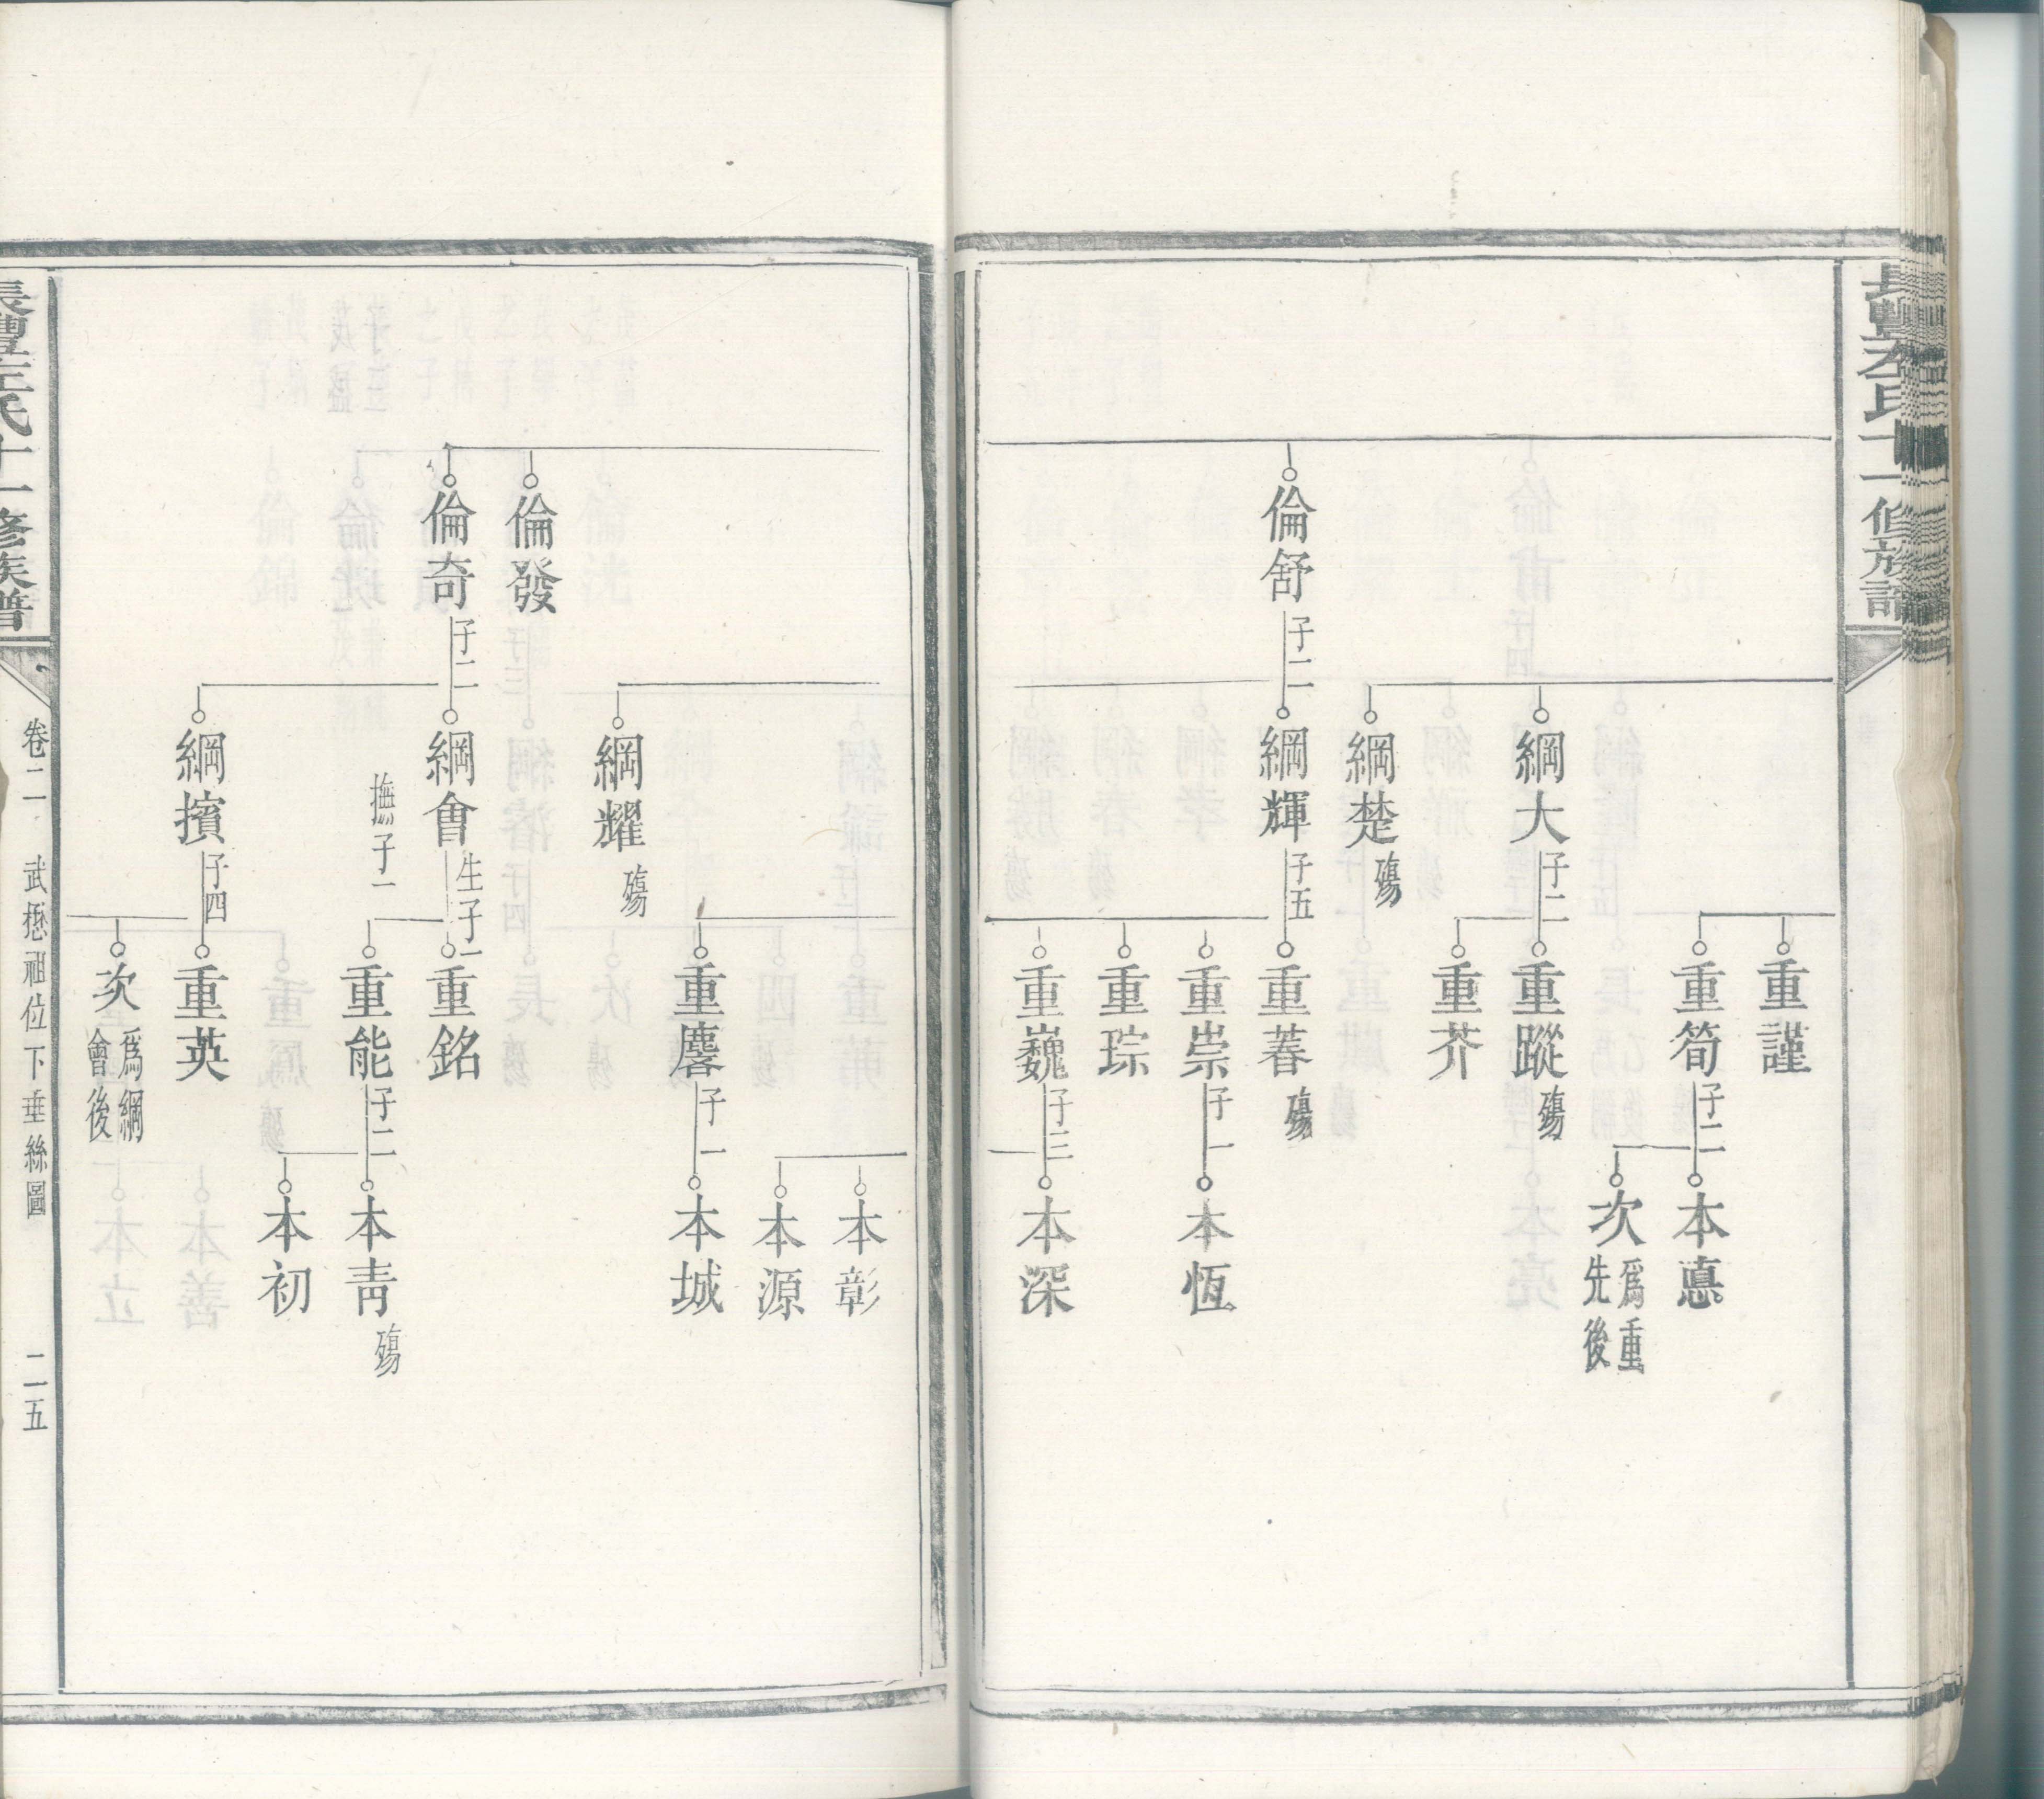 倫舒 子二
綱大 子二
綱楚 殤
綱輝 子五
重謹
重筍 子二
重蹤 殤
重芥
重萶 殤
重崇 子一
重琮
重巍 子三
本悳
次 爲重先後
本恆
本深
倫發
倫奇 子二
綱耀 殤
綱會 生子一 撫子一
綱擯 子四
重麐 子一
重銘
重能 子二
重英
次 爲綱會後
本彰
本源
本城
本青 殤
本初
氏十一修族譜
卷二 武懋祖位下垂絲圖 二五